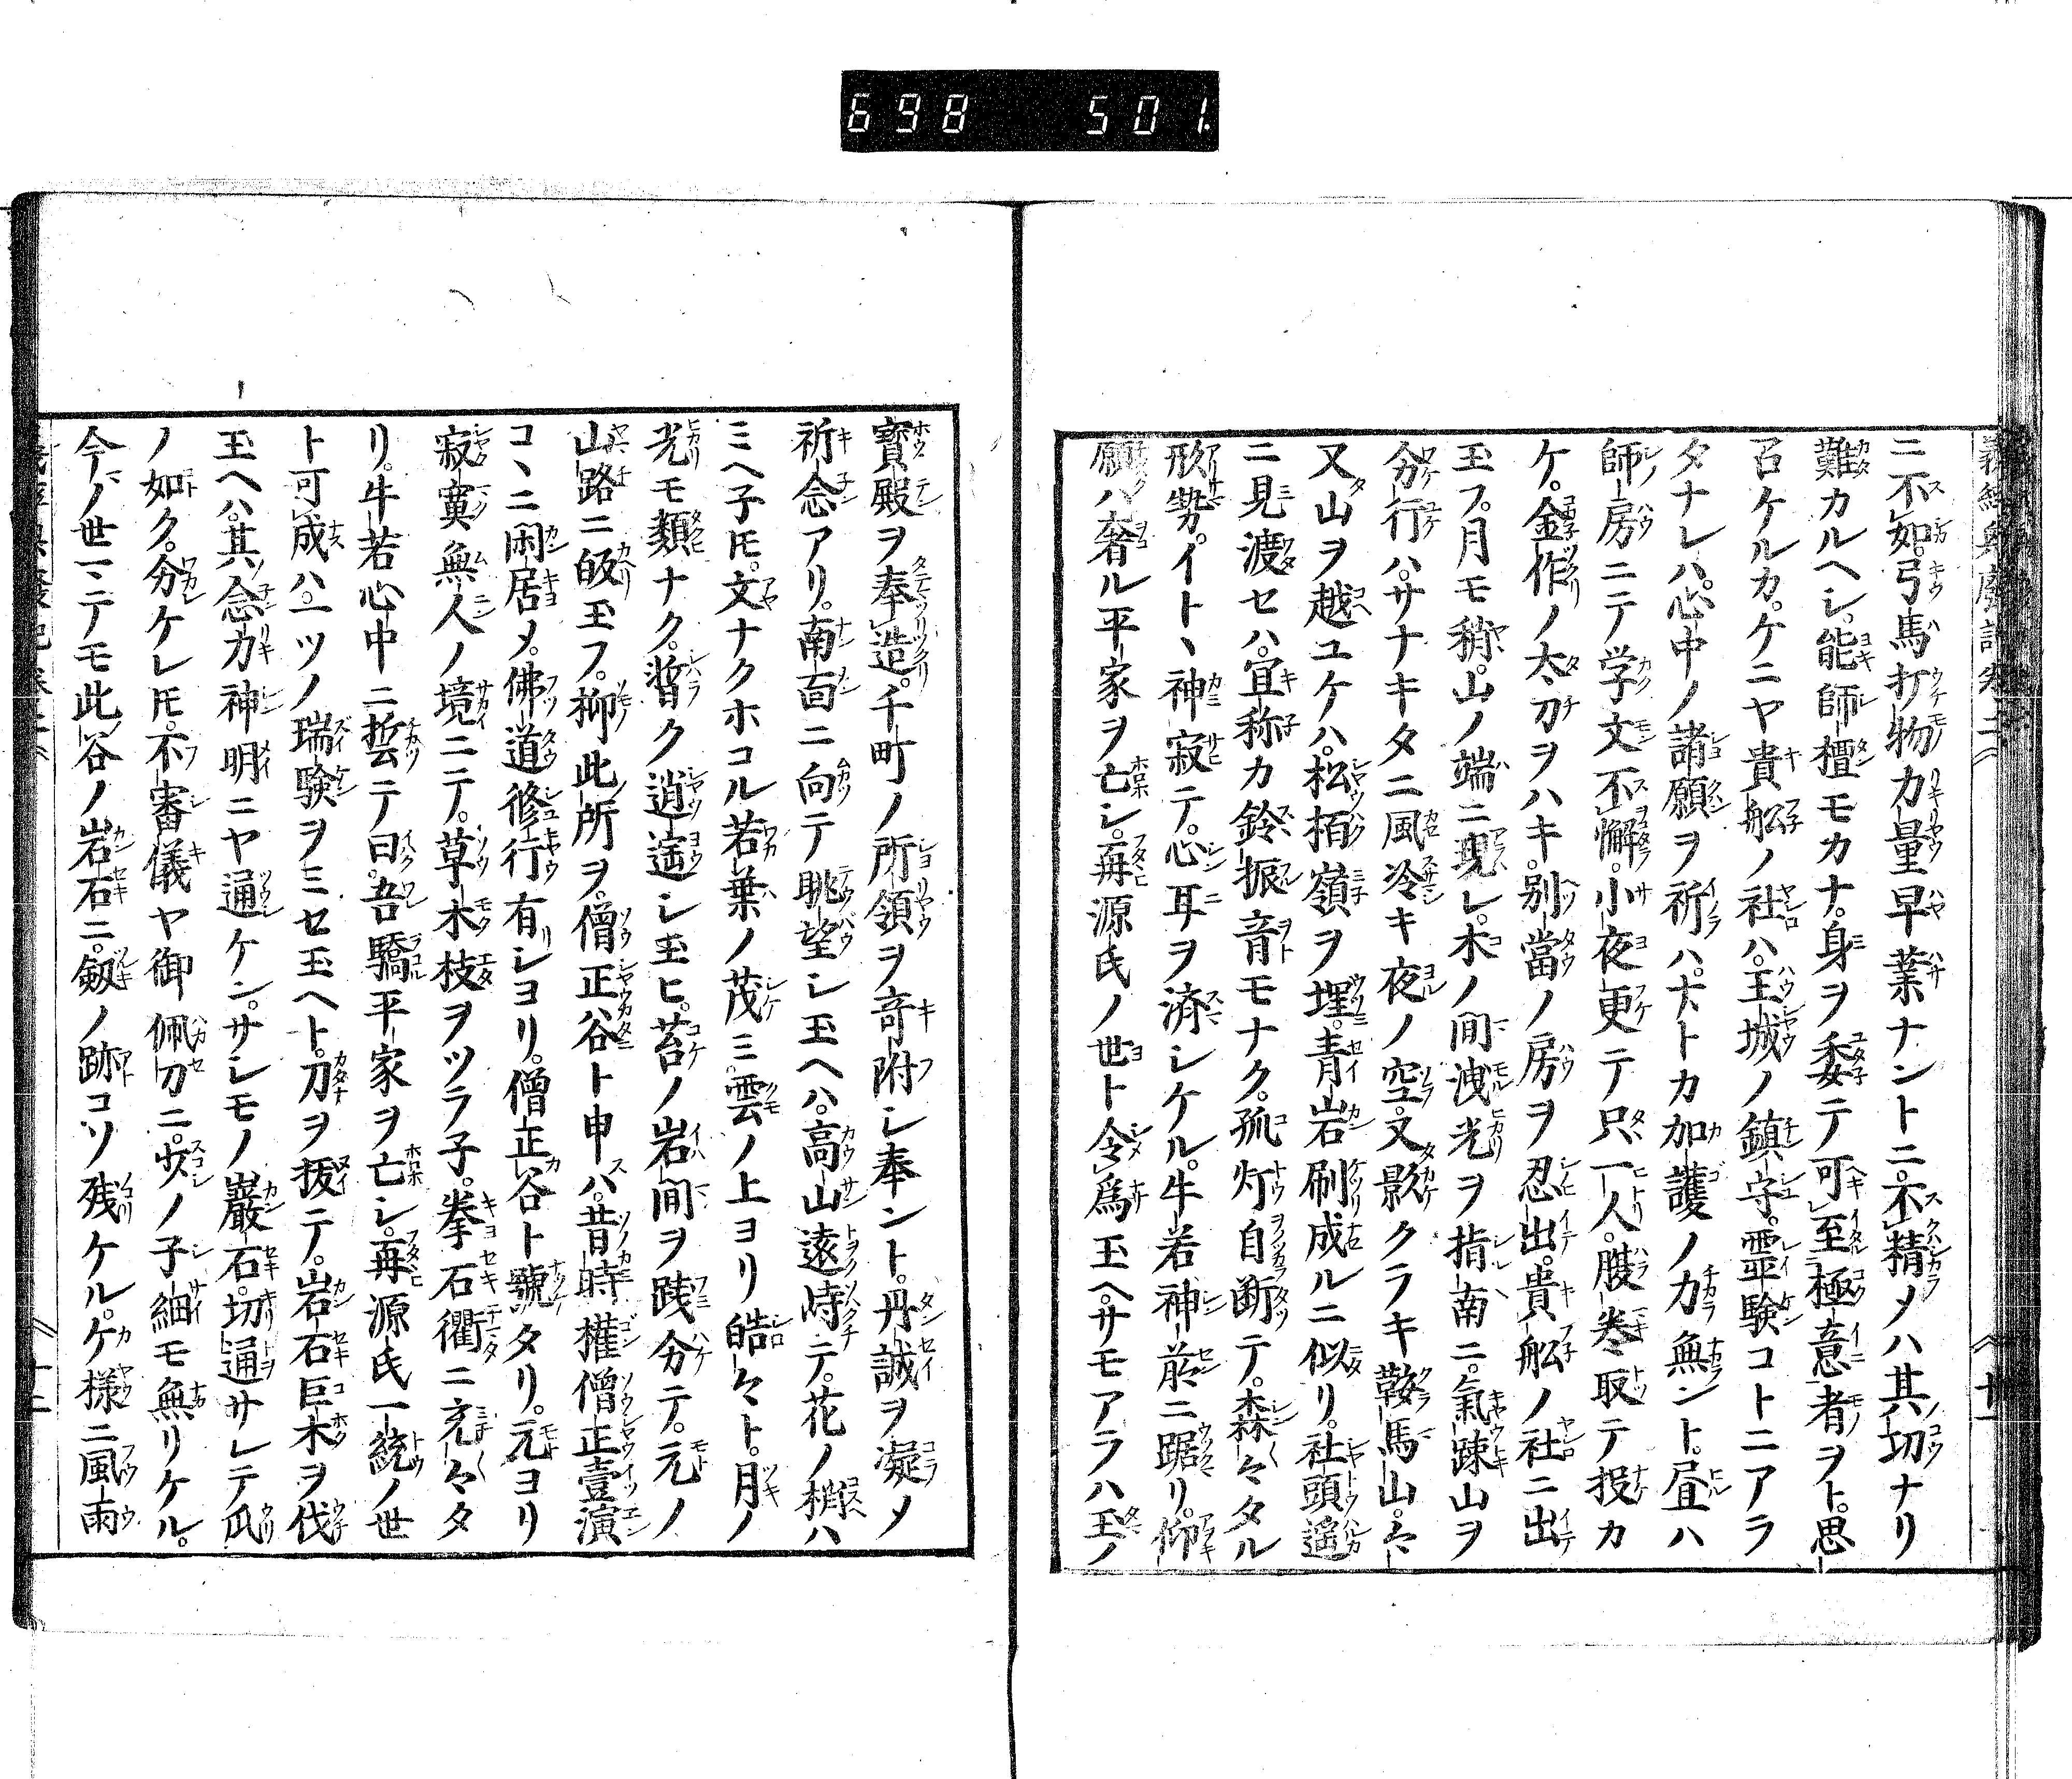 698 501.
ニ不如。弓馬打物力量早業ナントニ。不精メハ其切ナリ
難カルヘシ。能師檀モカナ。身ヲ委テ可至極意者ヲト。思
召ケルカ。ケニヤ貴舩ノ社ハ。王城ノ鎮守。霊験コトニアラ
タナレハ。心中ノ諸願ヲ祈ハ。ナトカ加護ノ力無ント。昼ハ
師房ニテ学文不懈。小夜更テ只一人。腹巻取テ投カ
ケ。金作ノ太刀ヲハキ。別當ノ房ヲ忍出。貴舩ノ社ニ出
玉フ。月モ稍。山ノ端ニ現レ。木ノ間洩光ヲ指南ニ。氣疎山ヲ
分行ハ。サナキタニ風冷キ夜ノ空。又影クラキ鞍馬山。々
又山ヲ越ユケハ。松栢嶺ヲ埋。青岩刷成ルニ似リ。社頭遙
ニ見渡セハ。宜祢カ鈴振音モナク。孤灯自断テ。森々タル
形勢。イトヽ神寂テ。心耳ヲ済シケル。牛若神前ニ踞リ。仰
願ハ奢ル平家ヲ亡シ。再源氏ノ世ト令為玉ヘ。サモアラハ王ノ
寳殿ヲ奉造。千町ノ所領ヲ寄附シ奉ント。丹誠ヲ凝メ
祈念アリ。南面ニ向テ眺望シ玉ヘハ。高山遠時テ。花ノ梢ハ
ミヘ子𪜈。文ナクホコル若葉ノ茂ミ。雲ノ上ヨリ皓々ト。月ノ
光モ類ナク。暫ク逍遥シ玉ヒ。苔ノ岩間ヲ践分テ。元ノ
山路ニ皈玉フ。抑此所ヲ。僧正谷ト申ハ。昔時權僧正壹演
コヽニ閑居メ。佛道修行有シヨリ。僧正谷ト號タリ。元ヨリ
寂寞無人ノ境ニテ。草木枝ヲツラ子。拳石衢ニ充々タ
リ。牛若心中ニ誓テ曰。吾驕平家ヲ亡シ。再源氏一統ノ世
ト可成ハ。一ツノ瑞験ヲミセ玉ヘト。刀ヲ抜テ。岩石巨木ヲ伐
玉ヘハ。其念力神明ニヤ通ケン。サシモノ巖石。切通サレテ瓜
ノ如ク。分ケレ𪜈。不審儀ヤ御佩刀ニ。少ノ子細モ無リケル。
今ノ世ニテモ此谷ノ岩石ニ。劔ノ跡コソ残ケル。ケ様ニ風雨